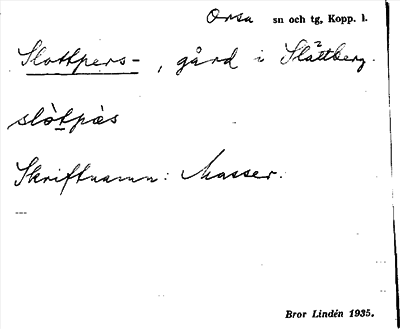 Orsa sn och tg, Kopp. l.
Slottpers-, gård i Slättberg.
slòtpàs
Skriftnamn: Masser.
Bror Lindén 1935.